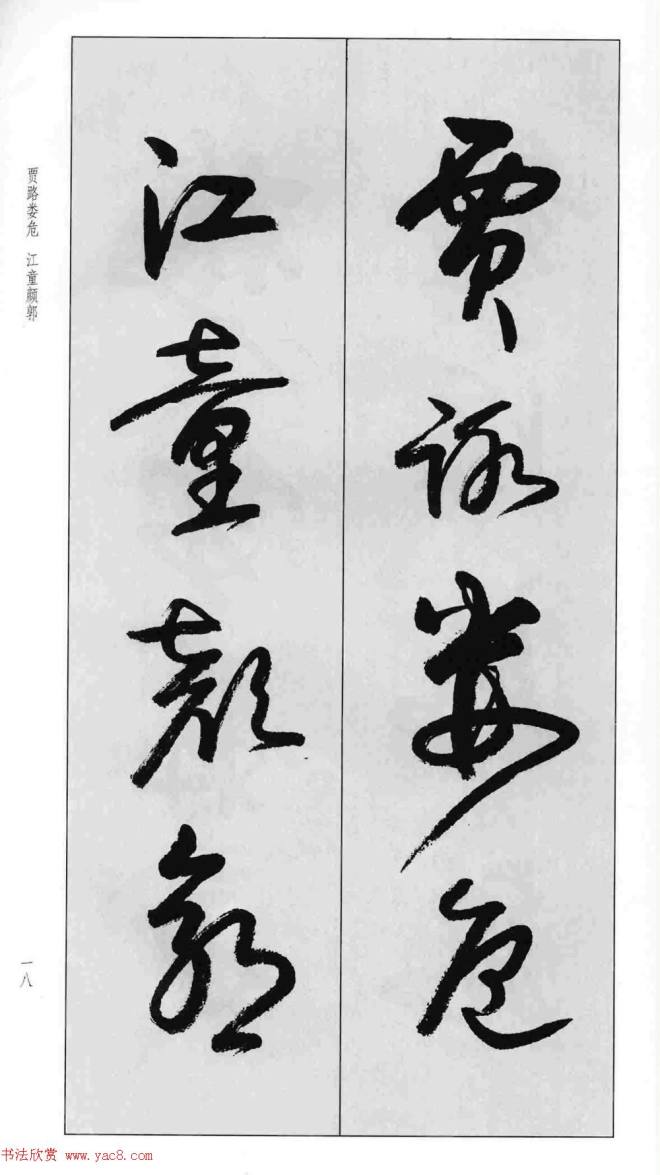 賈路婁危
江童顏郭
贾路娄危　江童颜郭
一八
书法欣赏 www.yac8.com